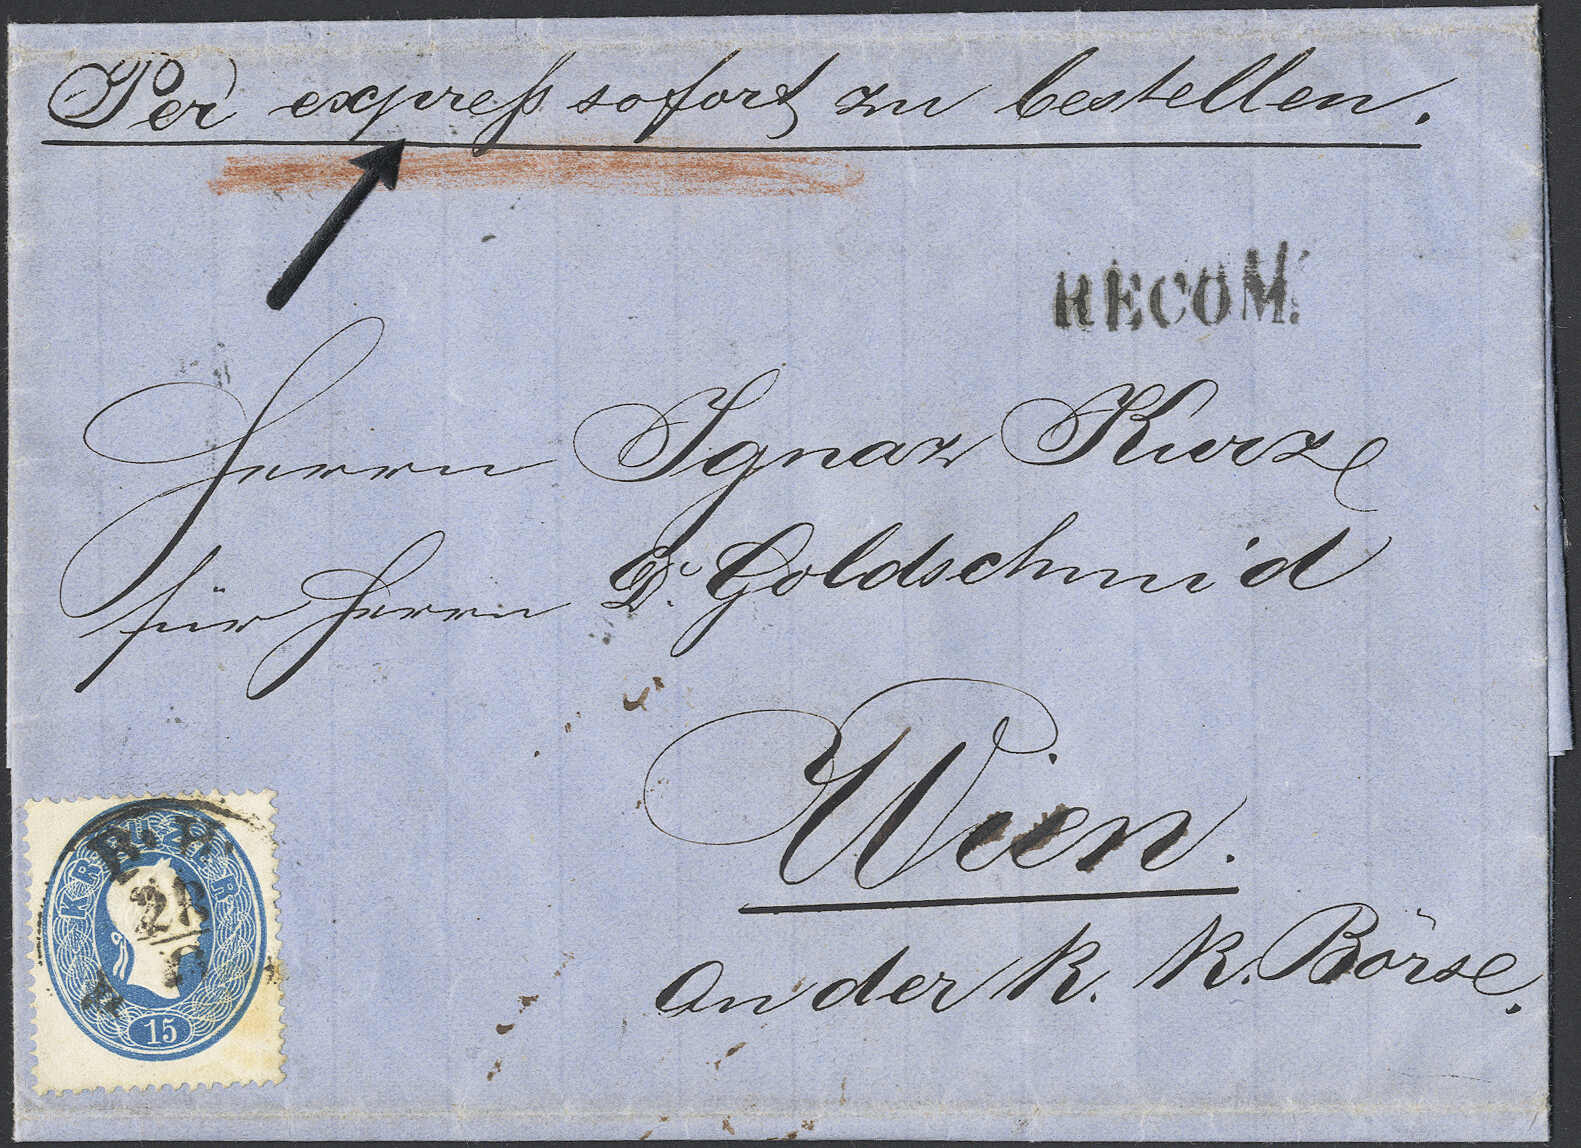 Per expreß sofort zu bestellen.
RECOM.
Herrn Ignaz Kurz
für Herrn D. Goldschmid
Wien.
an der k. k. Börse.
KREUZER
22
15